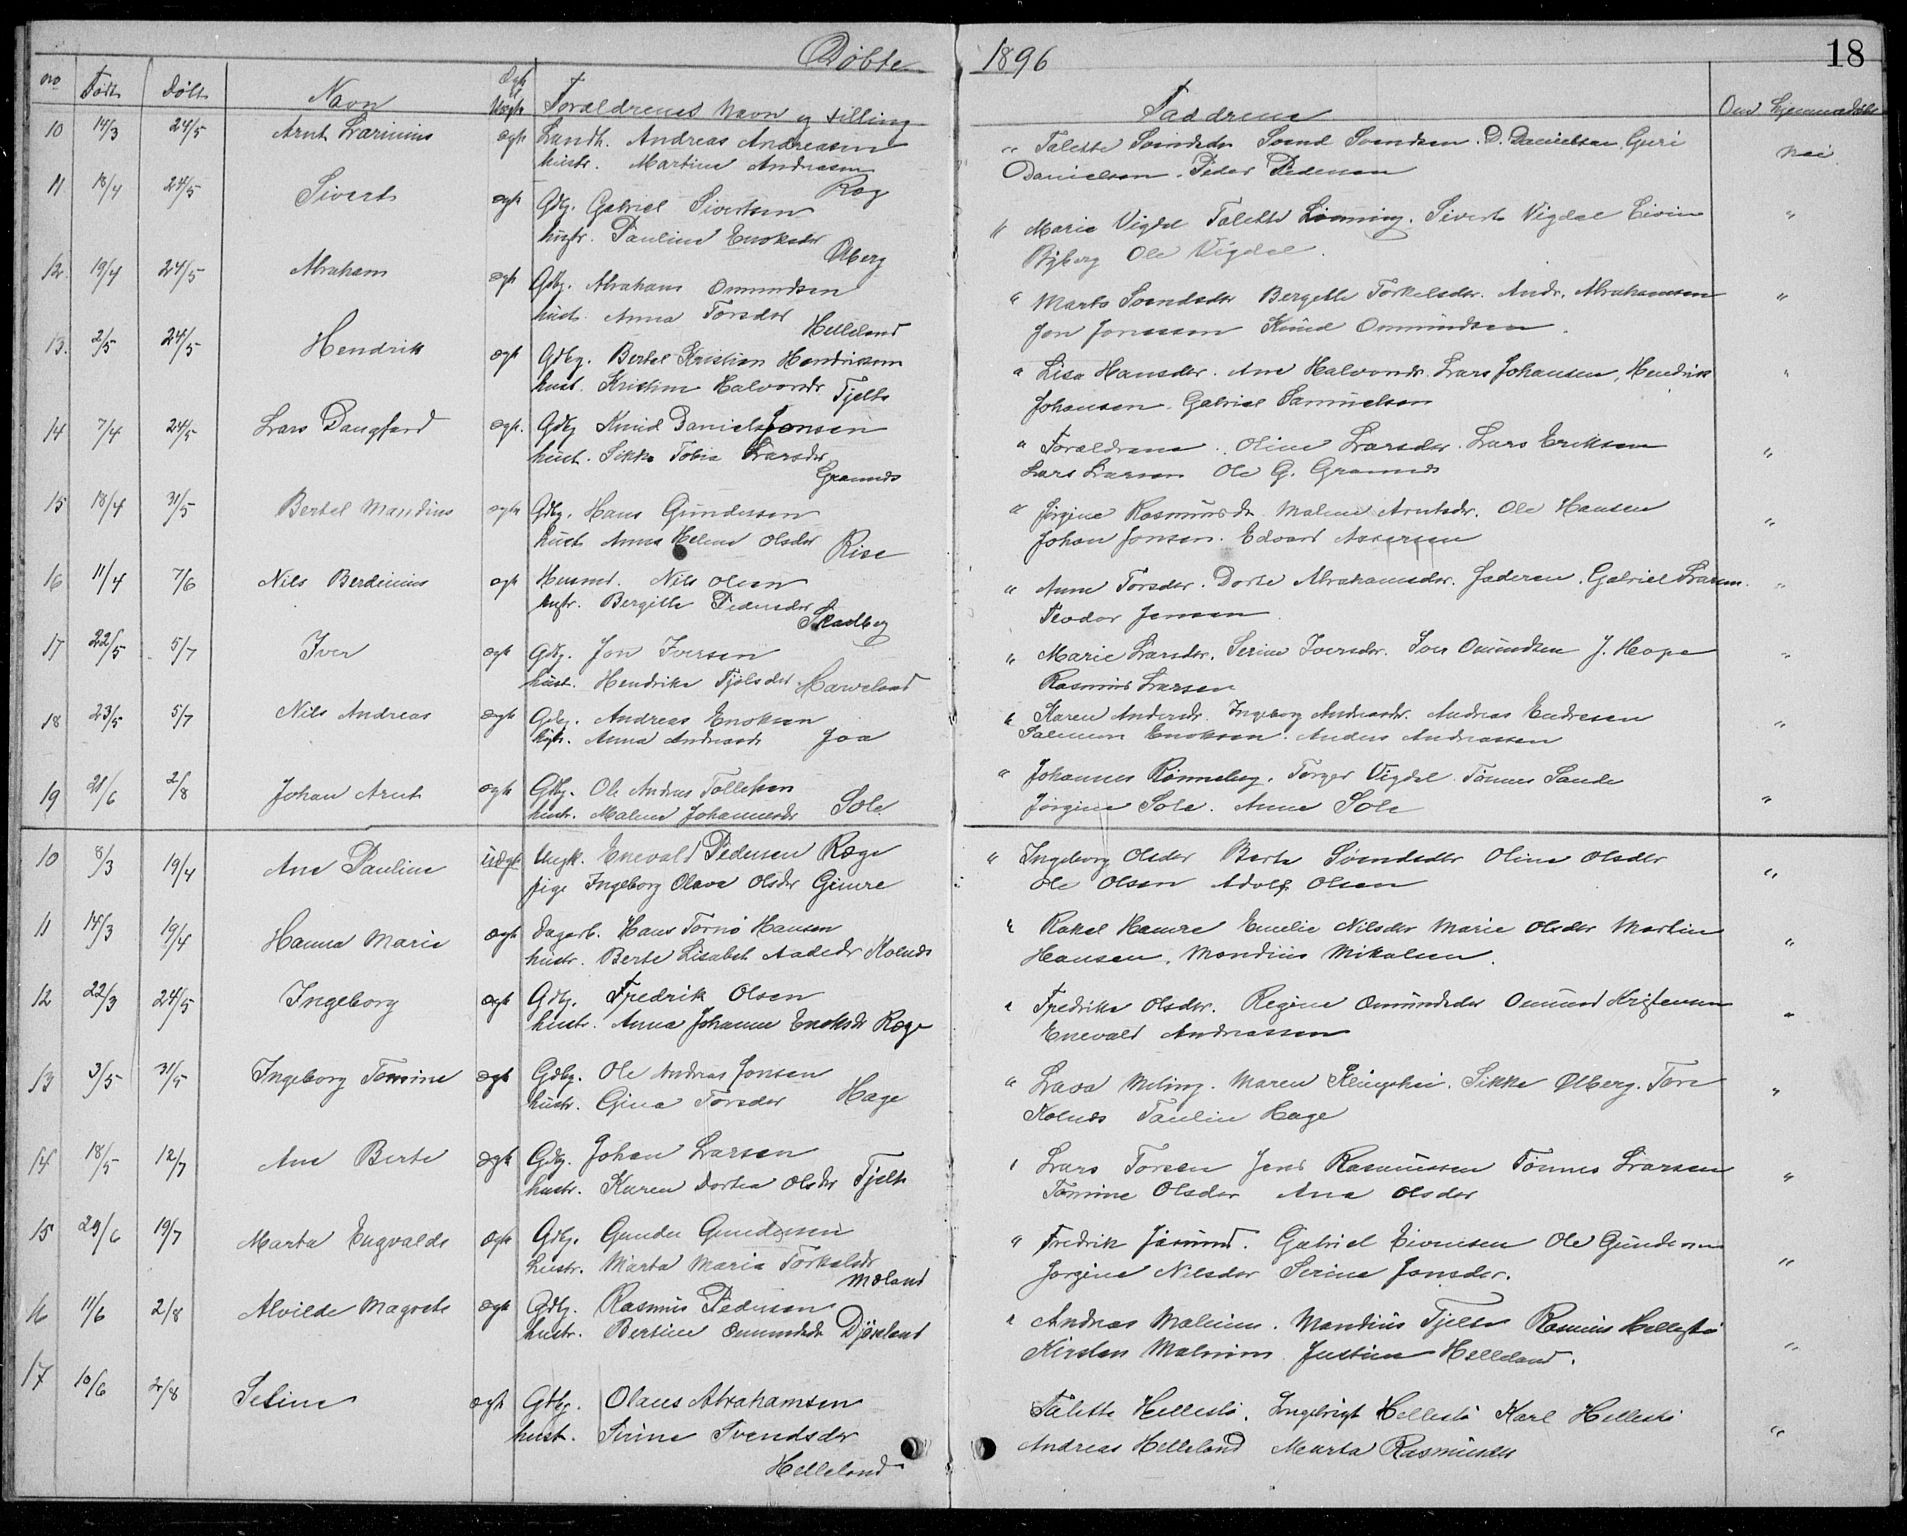 Døbte 1896 18
No Født Døbt Navn Ægt Uægt Forældrenes Navn og stilling Faddrene Om hjemmedøbt
10 14/3 24/5 Arnt Larinius ægt Landh. Andreas Andreasen " Talette Svendsdr Svend Svendsen. D. Danielsen. Guri nei
hustr. Martine Andreasen Danielsen. Peder Pedersen
Ræg
11 18/4 24/5 Sivert ægt Gdbg. Gabriel Sivertsen " Marie Vigdel Talette Lønning. Sivert Vigdel Eivin "
hustr. Pauline Enoksdr Byberg Ole Vigdel.
Ølberg
12. 19/4 24/5 Abraham ægt Gdbg. Abraham Omundsen " Marta Svendsdr Bergette Torkelsdr. Andr. Abrahamsen "
hust. Anna Torsdr Jon Jonassen Knud Omundsen.
Helleland
13. 2/5 24/5 Hendrik ægt Gdbg. Bertel Kristian Hendriksen " Lisa Hansdr. Ane Halvorsdr. Lars Johansen, Hendrik "
hust. Kristine Halvorsdr Tjelte Johansen. Gabriel Samuelsen
14 7/4 24/5 Lars Daugfard ægt. Gdbg Knud Danielsjonsen " Forældrene. Oline Larsdr. Lars Eriksen "
hust. Sikke Tobia Larsdr Lars Larsen Ole G. Grannes
Grannes
15 18/4 31/5 Bertel Mandius ægte Gdbg. Hans Gundersen " Jørgine Rasmusdr Malene Arntsdr. Ole Hansen "
hust. Anna Helene Olsdr Rise Johan Jonsen. Edvard Assersen
16 11/4 7/6 Nils Berdinius ægt Husmd. Nils Olsen " Anne Torsdr. Dorte Abrahamsdr. Gabriel Larsen. "
hustr. Bergitte Pedersdr Teodor Jensen
Skadberg
17 22/5 5/7 Iver ægt Gdbg. Jon Iversen " Marie Larsdr. Serine Iversdr. Iver Omundsen J. Hope "
hust. Hendrikke Rasmus Larsen
18 23/5 5/7 Nils Andreas ægt Gdbg. Andreas Enoksen " Karen Andersdr. Ingeborg Andreasdr. Andreas Endresen "
hust. Anna Andreasdr Joa Salemon Enoksen. Anders Andreassen
19 21/6 2/8 Johan Arnt ægt Gdbg. Ole Andreas Tollefsen " Johannes Rønneberg. Torger Vigdel. Tønnes Sande
hust. Malene Johannesdr Sole Jørgine Sole. Anna Sole "
10 8/3 19/4 Ane Pauline uægte Ungk. Enevald Pedersen Ræge " Ingeborg Olsdr Berta Svendsdr Oline Olsdr "
pige Ingeborg Olava Olsdr Gimre Ole Olsen Adolf Olsen
11 14/3 19/4 Hanna Marie ægt dagarb. Hans Tornø Hansen " Rakel Hamre Emelie Nilsdr Marie Olsdr Martin "
hustr. Berte Lisabet Aadedr Kolnes Hansen, Mandius Mikalsen.
12 22/3 24/5 Ingeborg ægt Gdbg. Fredrik Olsen " Fredrikke Olsdr. Regine Omundsdr Omund Kristensen "
hustr. Anna Johanne Enoksdr Ræge Enevald Andreassen
13 3/5 31/5 Ingeborg Tomine ægt Gdbg. Ole Andreas Jonsen " Lava Meling. Maren Sikke Ølberg. Tore "
hustr. Gina Torsdr Hage Kolnes Paulin Hage
14 18/5 12/7 Ane Berte ægt Gdbg. Johan Larsen " Lars Torsen Jens Rasmussen Tønnes Larsen "
hustr. Karen Dortea Olsdr Tjelte Tomine Olsdr Ane Olsdr
15 29/6 19/7 Marta Engvalde ægt Gdbg. Gunder Gundersen " Fredrik Jåsund. Gabriel Eivensen Ole Gundersen "
hustr. Marta Maria Torkelsdr Jørgine Nilsdr Serine Jonsdr.
Meland
16 11/6 2/8 Alvilde Magrete ægt Gdbg. Rasmus Pedersen " Andreas Malmin. Mandius Tjelte Rasmus Hellestø "
hustr. Bertine Omundsdr Djøseland Kirsten Malmin Justine Helleland.
17 10/6 2/8 Seline ægt Gdbg. Olaus Abrahamsen Talette Hellestø. Ingebrigt Hellestø Karl Hellestø "
hust. Sirine Svendsdr Andreas Helleland Marta Rasmusdr
Helleland